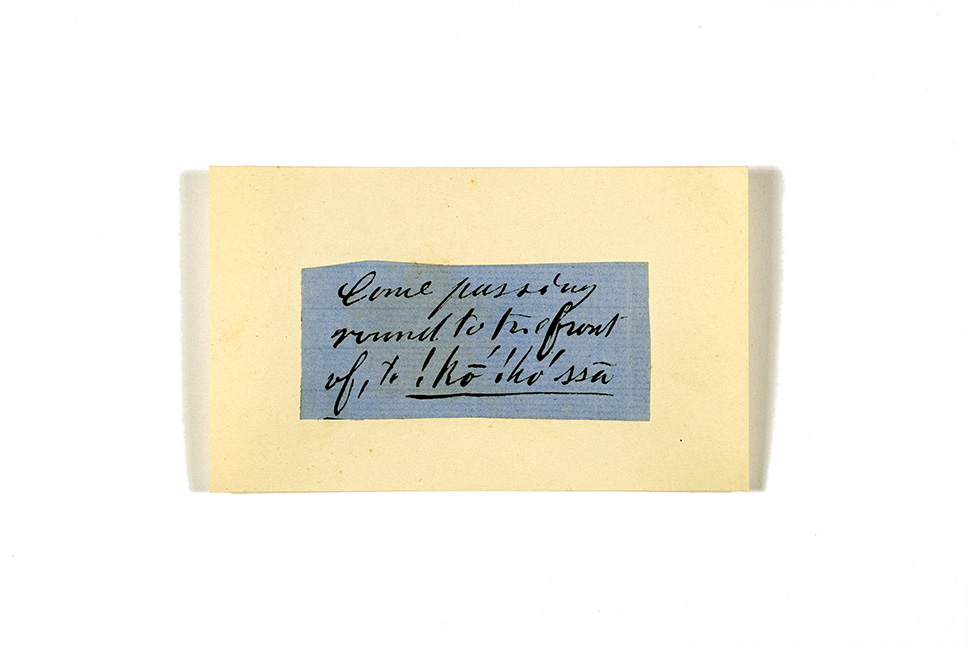 Come passing
round to the front
of, to !kō´ !kó´ssā